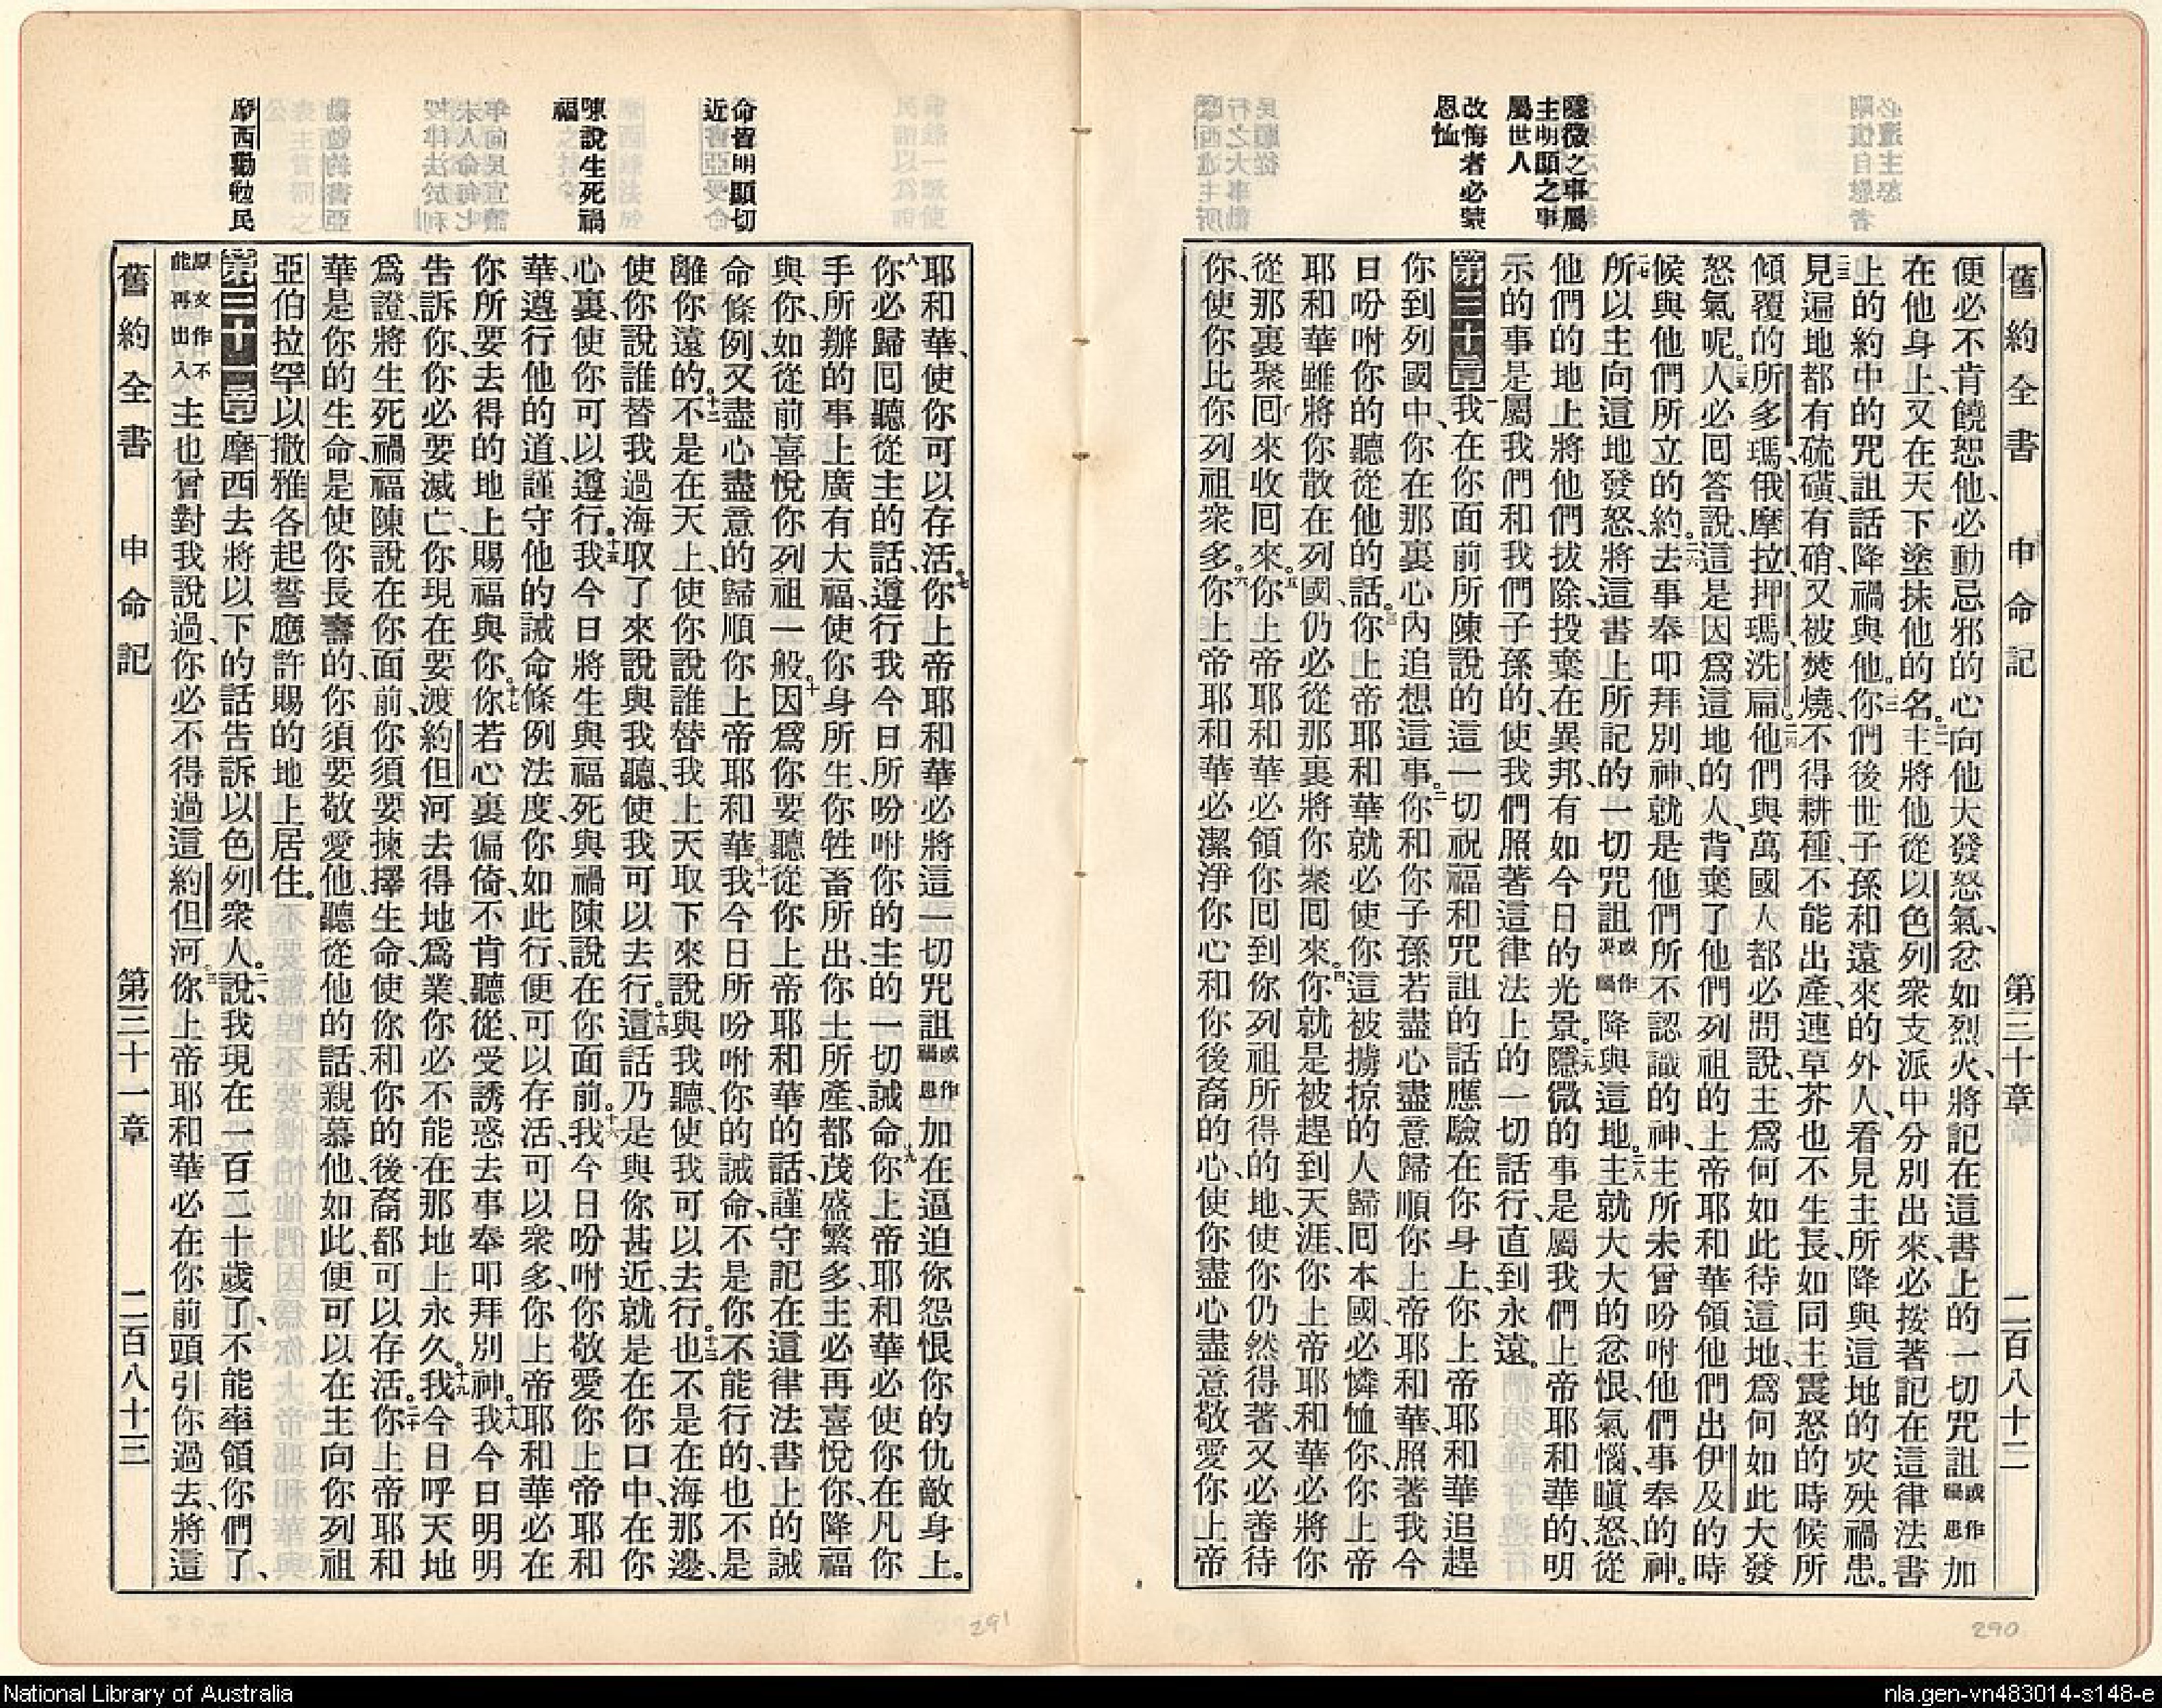 隱微之事屬
主明顯之事
屬世人
改悔者必蒙
恩恤
舊約全書 申命記 第三十章 二百八十二
便必不肯饒恕他、必動忌邪的心向他大發怒氣、忿如烈火、將記在這書上的一切咒詛或作禍患加
在他身上、又在天下塗抹他的名。二一主將他從以色列衆支派中分別出來、必按著記在這律法書
上的約中的咒詛話降禍與他。二二你們後世子孫和遠來的外人、看見主所降與這地的灾殃禍患。
二三見遍地都有硫磺、有硝、又被焚燒、不得耕種、不能出產、連草芥也不生長、如同主震怒的時候所
傾覆的所多瑪俄摩拉押瑪洗扁。二四他們與萬國人都必問說、主爲何如此待這地、爲何如此大發
怒氣呢。二五人必回答說、這是因爲這地的人、背棄了他們列祖的上帝耶和華領他們出伊及的時
候與他們所立的約。二六去事奉叩拜別神、就是他們所不認識的神、主所未曾吩咐他們事奉的神。
二七所以主向這地發怒、將這書上所記的一切咒詛或作災禍降與這地。二八主就大大的忿恨、氣惱、瞋怒、從
他們的地上將他們拔除、投棄在異邦、有如今日的光景。二九隱微的事是屬我們上帝耶和華的、明
示的事是屬我們和我們子孫的、使我們照著這律法上的一切話行、直到永遠。
第三十章一我在你面前所陳說的這一切祝福和咒詛的話應驗在你身上、你上帝耶和華追趕
你到列國中、你在那裏心內追想這事。二你和你子孫若盡心盡意歸順你上帝耶和華、照著我今
日吩咐你的聽從他的話。三你上帝耶和華就必使你這被擄掠的人歸囘本國、必憐恤你、你上帝
耶和華雖將你散在列國、仍必從那裏將你聚囘來。四你就是被趕到天涯、你上帝耶和華必將你
從那裏聚囘來收囘來。五你上帝耶和華必領你囘到你列祖所得的地、使你仍然得著、又必善待
你、使你比你列祖衆多。六你上帝耶和華必潔淨你心和你後裔的心、使你盡心盡意敬愛你上帝
命皆明顯切
近
陳說生死禍
福
摩西勸勉民
耶和華、使你可以存活。七你上帝耶和華必將這一切咒詛或作禍患加在逼迫你怨恨你的仇敵身上。
八你必歸囘聽從主的話、遵行我今日所吩咐你的主的一切誡命。九你上帝耶和華必使你在凡你
手所辦的事上廣有大福、使你身所生、你牲畜所出、你土所產、都茂盛繁多、主必再喜悅你、降福
與你、如從前喜悅你列祖一般。十因爲你要聽從你上帝耶和華的話、謹守記在這律法書上的誡
命條例、又盡心盡意的歸順你上帝耶和華。十一我今日所吩咐你的誡命、不是你不能行的、也不是
離你遠的。十二不是在天上、使你說誰替我上天取下來說與我聽、使我可以去行。十三也不是在海那邊、
使你說誰替我過海取了來說與我聽、使我可以去行。十四這話乃是與你甚近、就是在你口中、在你
心裏、使你可以遵行。十五我今日將生與福死與禍陳說在你面前。十六我今日吩咐你敬愛你上帝耶和
華、遵行他的道、謹守他的誡命條例法度、你如此行、便可以存活、可以衆多、你上帝耶和華必在
你所要去得的地上賜福與你。十七你若心裏偏倚、不肯聽從、受誘惑去事奉叩拜別神。十八我今日明明
告訴你、你必要滅亡、你現在要渡約但河去得地爲業、你必不能在那地上永久。十九我今日呼天地
爲證、將生死禍福陳說在你面前、你須要揀擇生命、使你和你的後裔都可以存活。二十你上帝耶和
華是你的生命、是使你長壽的、你須要敬愛他、聽從他的話、親慕他、如此、便可以在主向你列祖
亞伯拉罕以撒雅各起誓應許賜的地上居住。
第三十一章一摩西去將以下的話吿訴以色列衆人。二說、我現在一百二十歲了、不能率領你們了、
原文作不能再出入主也曾對我說過、你必不得過這約但河。三你上帝耶和華必在你前頭引你過去、將這
舊約全書 申命記 第三十一章 二百八十三
291
290
National Library of Australia
nla.gen-vn483014-s148-e